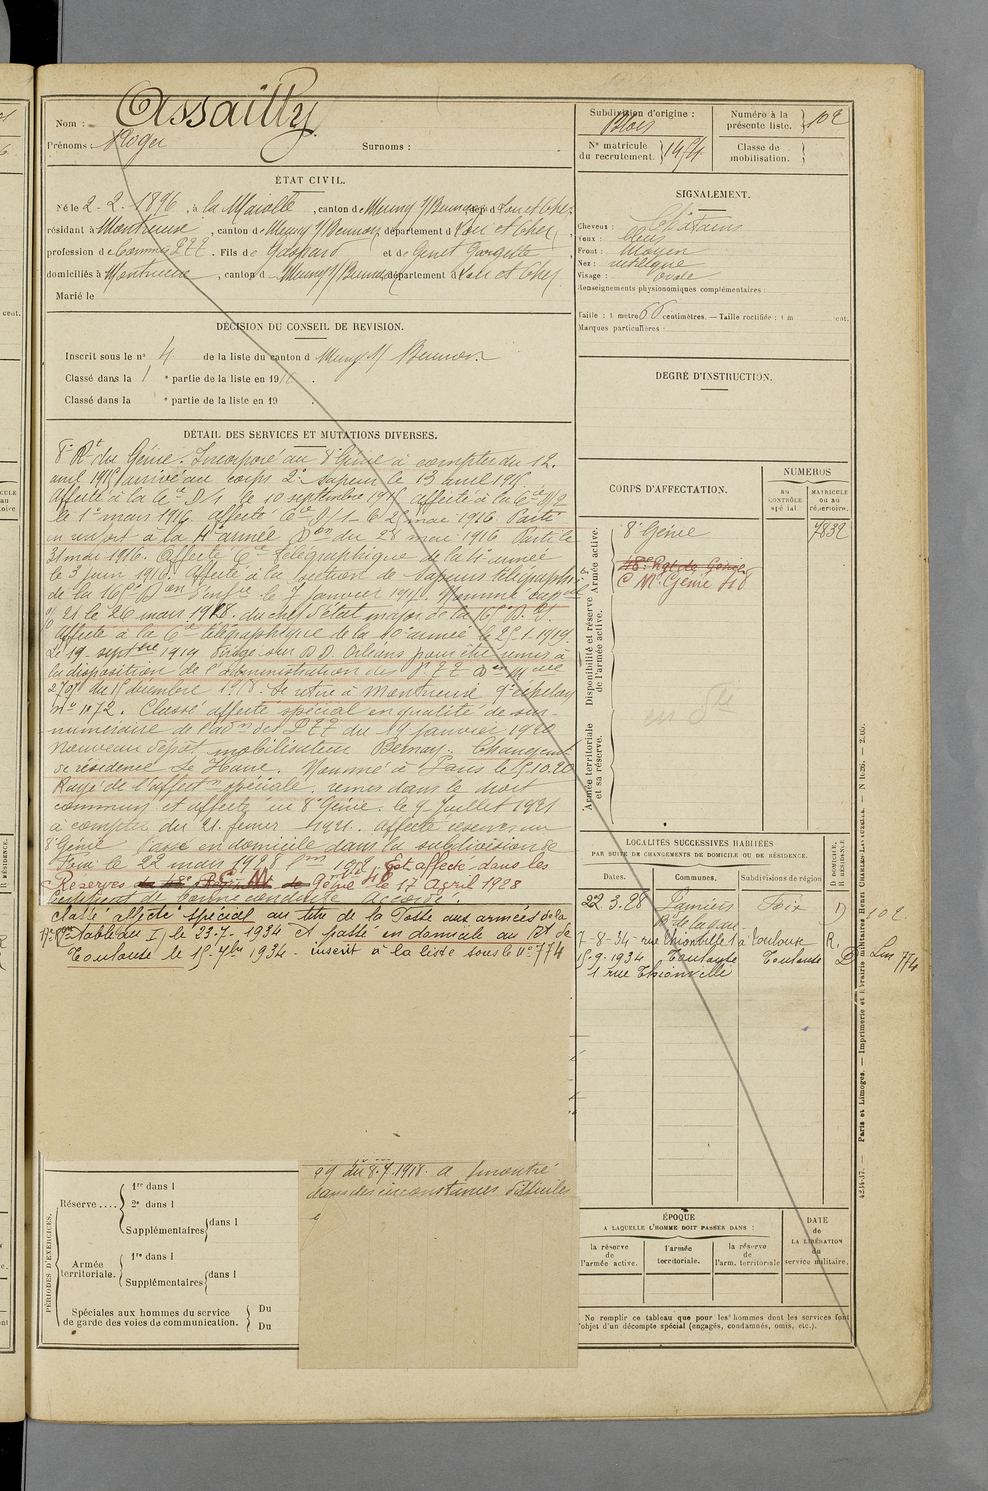 Nom : Assailly
Prénoms : Roger Surnoms :
ÉTAT CIVIL.
Né le 2-2-1896, à la Marolle, canton de Neung s/Beuvron, dép. d Loir et Cher
résidant à Montrieux, canton de Neung s/Beuvron, département d Loir et Cher,
profession de Commis PTT. Fils de et de Genet Georgette,
domiciliés à Montrieux, canton d Neung s/Beuvron, département d Loir et Cher.
Marié le
DÉCISION DU CONSEIL DE REVISION.
Inscrit sous le n° 4 de la liste du canton d Neung s/ Beuvron
Classé dans la 1 e partie de la liste en 1916.
Classé dans la e partie de la liste en 19 .
DÉTAIL DES SERVICES ET MUTATIONS DIVERSES.
8e Rt du Génie. Incorporé au 8e Génie à compter du 12
avril 1915 arrivé au corps 2e sapeur le 13 avril 1915.
Affecté à la Cie D1 le 10 septembre 1915 affecté à la Cie D2
le 1er mars 1916. affecté Cie D1 le 25 mai 1916. Parti
en renfort à la 4e année Don du 28 mai 1916. Parti le
31 mai 1916. Affecté Cie Télégraphique de la 4e armée
le 3 juin 1916. Affecté à la section de sapeurs télégraph.
de la 16e Don d'Infie le 7 janvier 1917. Nommé caporal
21 le 26 mars 1918. du chef d'état major de la 16e D.I.
Affecté à la Cie télégraphique de la 10e armée le 25-1-1919.
Le 19 septbre 1919 dirigé sur D.D. Orléans pour être remis à
la disposition de l'administration des PTT Don Mlle
2707 du 15 décembre 1918. Se retire à Montrieux
n° 1072. Classé affecté spécial en qualité de sur-
numéraire de l'adon des PTT du 19 janvier 1920
nouveau dépôt mobilisateur Bernay. Changement
de résidence Le Havre. Nommé à Paris le 5.10.20
Rayé de l'affectn spéciale. remis dans le droit
commun et affecté au 8e Génie. le 9 juillet 1921
à compter du 21 février 1921. affecté réserve au
8e Génie Passé en domicile dans la subdivision de
Foix le 22 mars 1928 Est affecté dans les
Réserves du 18e Régiment de Génie le 17 Avril 1928
Certificat de bonne conduite accordé.
classé affecté spécial au titre de la Poste aux armées de la
17e Rion tableau I, le 23-7-1934 et passé en domicile au Rt de
Toulouse le 15-7bre 1934 - inscrit à la liste sous le n° 774
99 du 8.7.1918. a montré
dans des circonstances difficiles
PÉRIODES D'EXERCICES.
Réserve....
1re dans l
2e dans l
Supplémentaires dans l
Armée territoriale.
1re dans l
Supplémentaires dans l
Spéciales aux hommes du service
de garde des voies de communication.
Du
Du
Subdivision d'origine : Blois
N° matricule du recrutement. 1454
Numéro à la présente liste. 102
Classe de mobilisation.
SIGNALEMENT.
Cheveux : Châtains
Yeux : bleus
Front : Moyen
Nez : rectiligne
Visage : ovale
Renseignements physionomiques complémentaires :
Taille : 1 mètre 66 centimètres. — Taille rectifiée : 1 m cent.
Marques particulières :
DEGRÉ D'INSTRUCTION.
CORPS D'AFFECTATION.
NUMÉROS
AU CONTRÔLE spécial.
MATRICULE ou au répertoire.
Armée active.
8e Génie 7832
18e Rgt de Génie
C M Génie 48
Disponibilité et réserve de l'armée active.
Armée territoriale et sa réserve.
LOCALITÉS SUCCESSIVES HABITÉES
PAR SUITE DE CHANGEMENTS DE DOMICILE OU DE RÉSIDENCE.
Dates. Communes. Subdivisions de région D DOMICILE, R RÉSIDENCE
22.3.28 Pamiers Foix D 102
Rue de la gare
7-8-34 rue Thionville 1 à Toulouse R.
15-9-1934 Toulouse Toulouse D Lin 774
1 rue Thionville
ÉPOQUE
A LAQUELLE L'HOMME DOIT PASSER DANS :
la réserve de l'armée active.
l'armée territoriale.
la réserve de l'arm. territoriale
DATE de LA LIBÉRATION du service militaire.
Ne remplir ce tableau que pour les hommes dont les services font
l'objet d'un décompte spécial (engagés, condamnés, omis, etc.).
4234-37. — Paris et Limoges. — Imprimerie et librairie militaires Henri CHARLES-LAVAUZELLE.